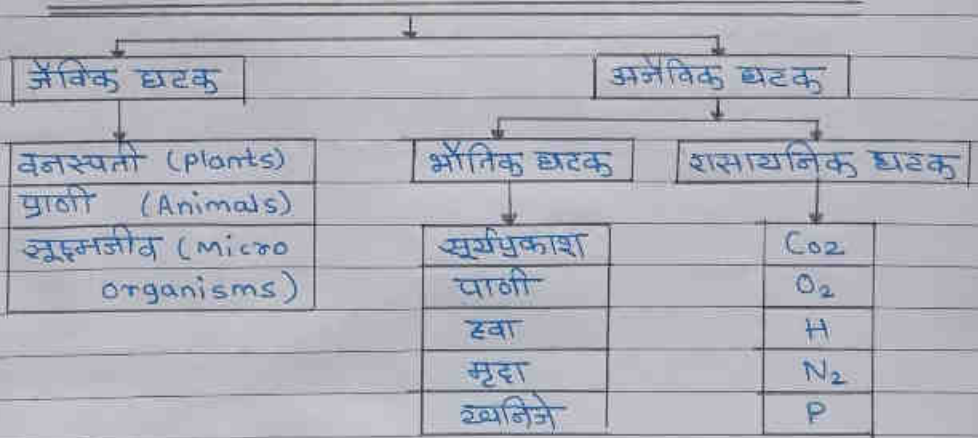 जैविक घटक
अजैविक घटक
वनस्पती (plants)
प्राणी (Animals)
सूक्ष्मजीव (Micro
organisms)
भौतिक घटक
रासायनिक घटक
सूर्यप्रकाश
पाणी
हवा
मृदा
खनिजे
CO2
O2
H
N2
P